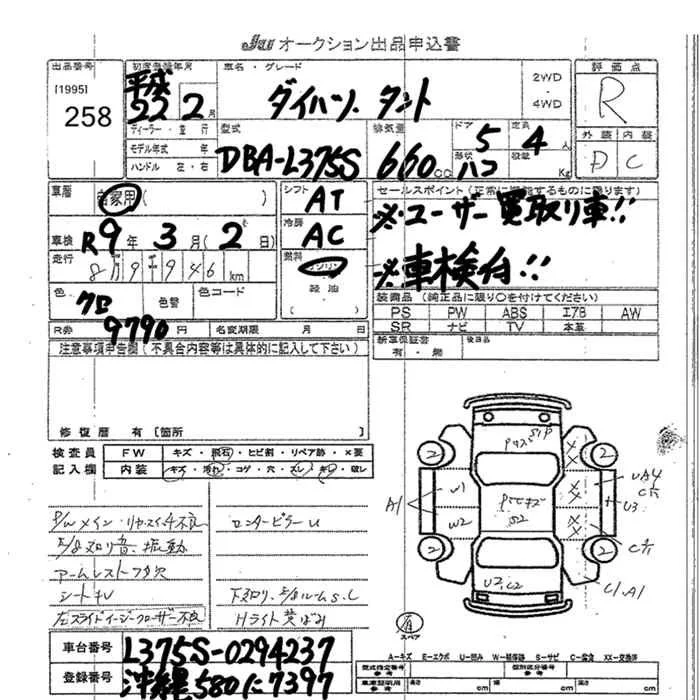 JU オークション出品申込書
出品番号 初度登録年月 車名・グレード 評価点
[1995] 258
平成 22 2月 ダイハツ タント 2WD・4WD R
ディーラー・並行 型式 排気量 ドア 5 定員 4人 外装 内装
モデル年式 年 DBA-L375S 660cc 形状 ハコ 積載 Kg D C
ハンドル 左・右
車歴 自家用( ) シフト AT セールスポイント(正常に機能するものに限ります)
冷房 AC ※ユーザー買取り車!!
車検 R9年 3月( 2 日) 燃料 ガソリン ※車検台!!
走行 8万9千946km 軽油
色 クロ 色替 色コード 装備品(純正品に限り○を付けてください)
PS PW ABS エアB AW
R券 9790円 名変期限 月 日 SR ナビ TV 本革
注意事項申告欄(不具合内容等は具体的に記入して下さい) 新車保証書 有・無 後日品
修復歴 有[箇所
検査員 FW キズ・飛石・ヒビ割・リペア跡・X要
記入欄 内装 キズ・汚れ・コゲ・穴・スレ・キレ・破レ
P/Wメイン・リヤスイッチ不良 センターピラーU
異音・振動
アームレストフタ欠
シートキレ 下廻り、S.C
左スライドイージークローザー不良 Hライト黄ばみ
A1 W1 W2 S2 U2,C2 UA4 U3 C1,A1
2 2 2 2
スペア
A-キズ E-エクボ U-凹み W-補修跡 S-サビ C-腐食 XX-交換済
車台番号 L375S-0294237 型式指定番号 参考 類別区分番号 参考
登録番号 沖縄 580 に 7397 長 cm 幅 cm 高 cm